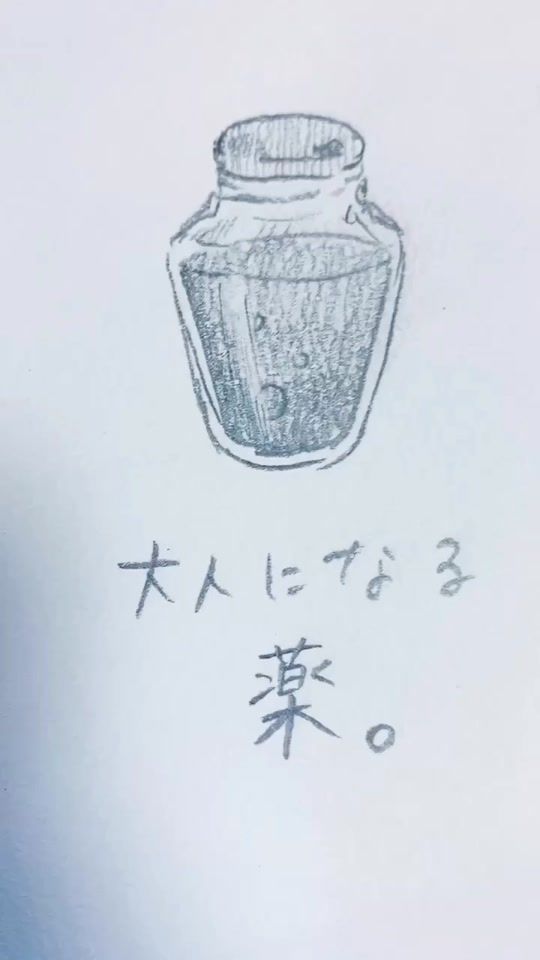 大人になる
薬。